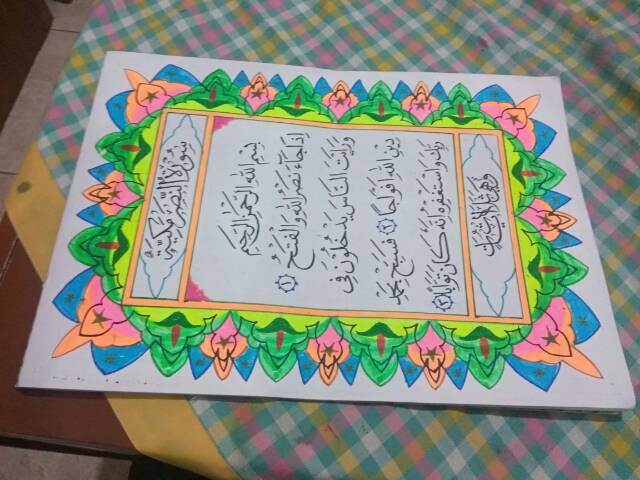 سُوْرَةُ النَّصْرِ مَكِّيَّةٌ
بِسْمِ اللّٰهِ الرَّحْمٰنِ الرَّحِيْمِ
اِذَا جَآءَ نَصْرُ اللّٰهِ وَالْفَتْحُ ١
وَرَاَيْتَ النَّاسَ يَدْخُلُوْنَ فِى
دِيْنِ اللّٰهِ اَفْوَاجًا ٢ فَسَبِّحْ بِحَمْدِ
رَبِّكَ وَاسْتَغْفِرْهُ اِنَّهٗ كَانَ تَوَّابًا ٣
وَهِيَ ثَلَاثُ اٰيَاتٍ